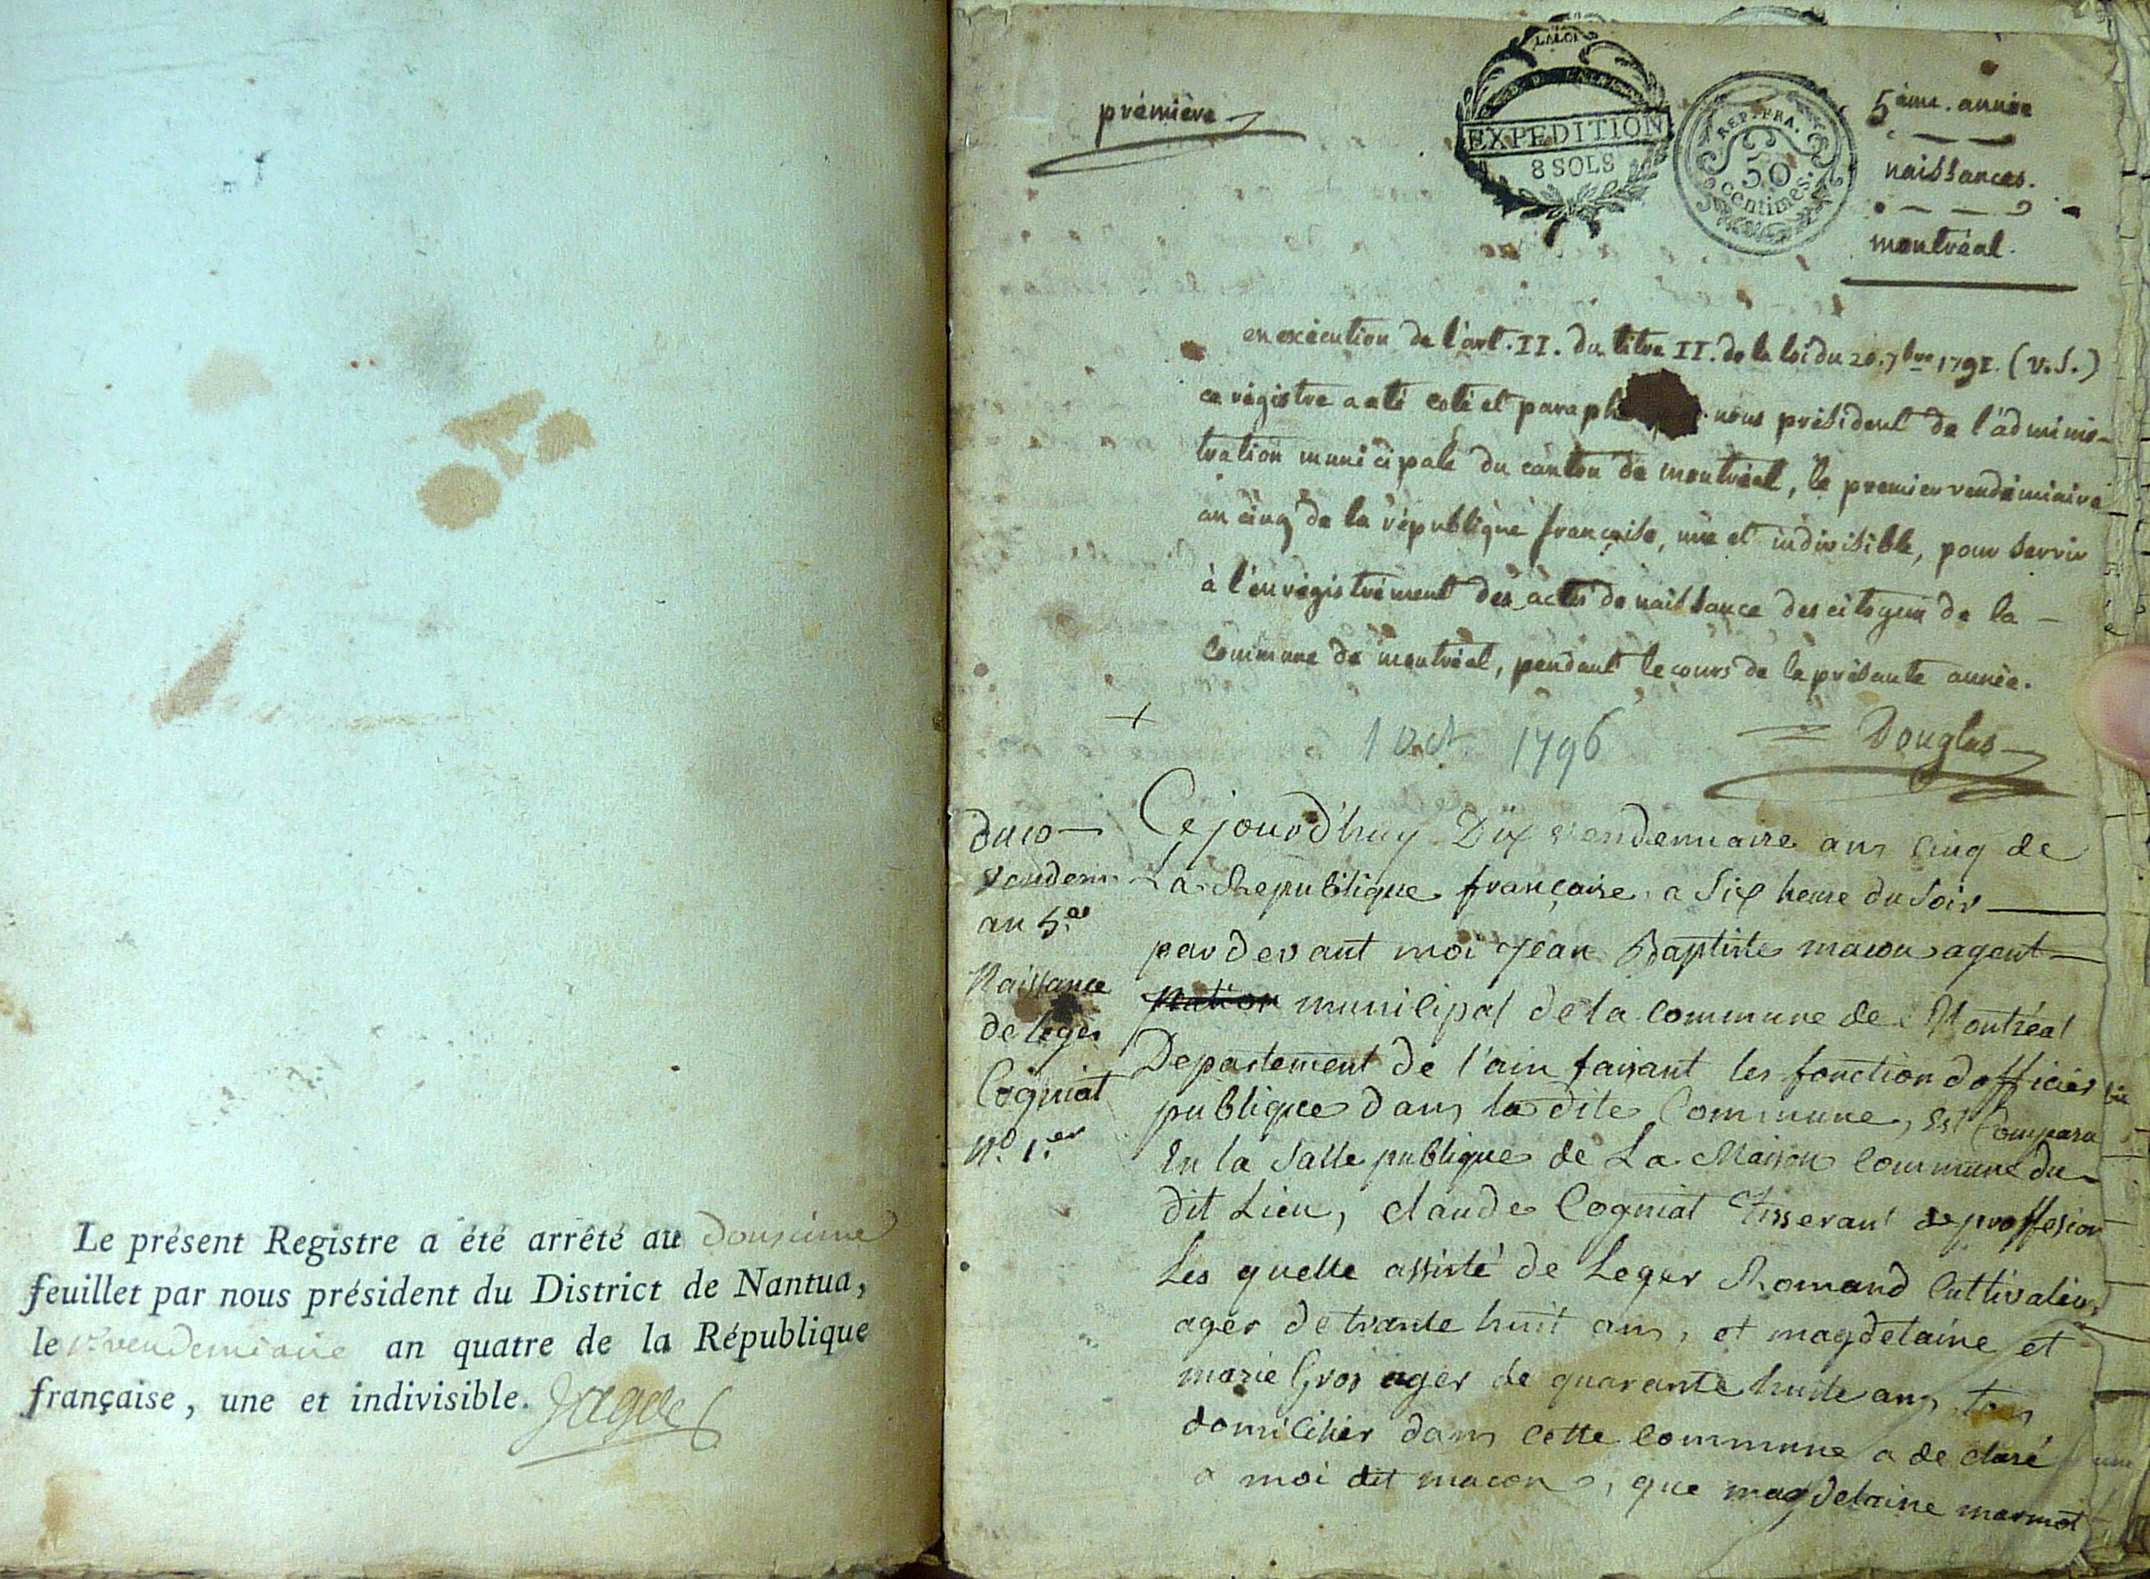 Le présent Registre a été arrêté au Douzieme
feuillet par nous président du District de Nantua,
le 1er vendemiaire an quatre de la République
française, une et indivisible.
prémière
LA LOI
EXPEDITION
8 SOLS
REP. FRA.
50
centimes.
5ème. année
naissances.
montréal.
en exécution de l'art. II. du titre II. de la loi du 20. 7bre 1792. (v.s.)
ce régistre a eté coté et paraphé nous président de l'adminis-
tration municipale du canton de montréal, le premier vendémiaire
an cinq de la république française, une et indivisible, pour servir
à l'enrégistrément des actes de naissance des citoyens de la
commune de montréal, pendant le cours de la présente année.
+ 1 Oct. 1796
Douglas
du 10
vendem.
an 5.e
Naissance
de leger
Cogniat
N.o 1.er
Ce jourd'huy Dix vendemiaire an cinq de
La Republique française a six heure du soir
par devant moi Jean Baptiste macon agent
municipal de la commune de Montréal
Departement de l'ain faisant les fonction d'officier
publique dans la dite Commune, Est Comparu
En la Salle publique de La Maison Commune du
dit Lieu, claude Cogniat Tisserant de proffesion
Les quelle assisté de Leger Romand Cultivateur
ager de trante huit ans, et magdelaine et
marie Gros ager de quarante huite ans tous
domicilier dans cette commune a declaré
a moi dit macon, que magdelaine marmot